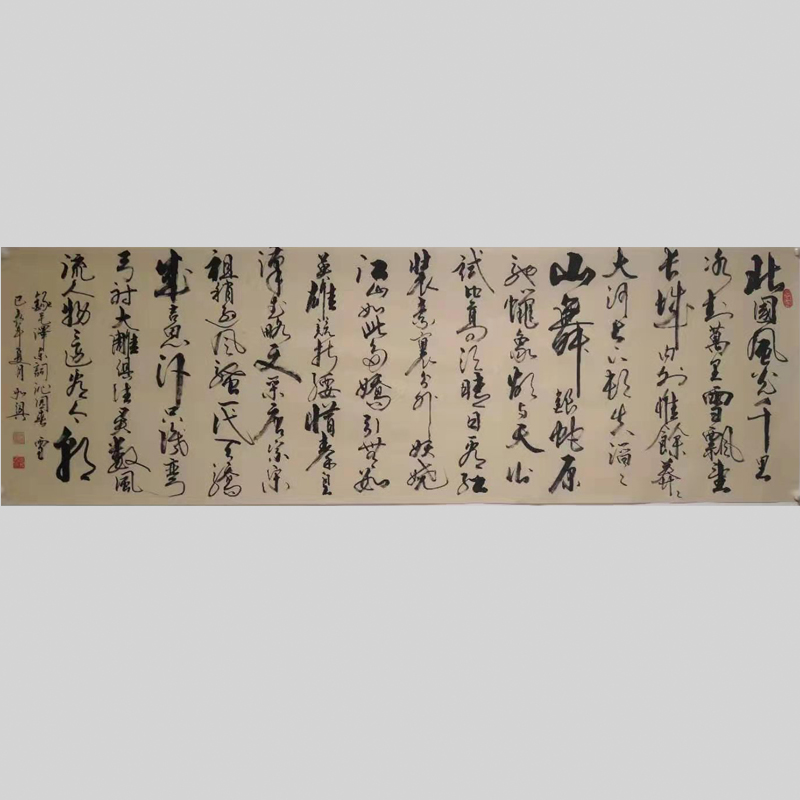 北國風光千里
冰封萬里雪飄望
長城內外惟餘莽々
大河上下頓失滔々
山舞銀蛇原
馳蠟象欲与天公
試比高須晴日看紅
裝素裹分外妖嬈
江山如此多嬌引無數
英雄競折腰惜秦皇
漢武略文采唐宗宋
祖稍遜風騷一代天驕
成吉思汗只識彎
弓射大雕俱往矣數風
流人物還看今朝
錄毛澤東詞沁園春 雪
己亥年夏月